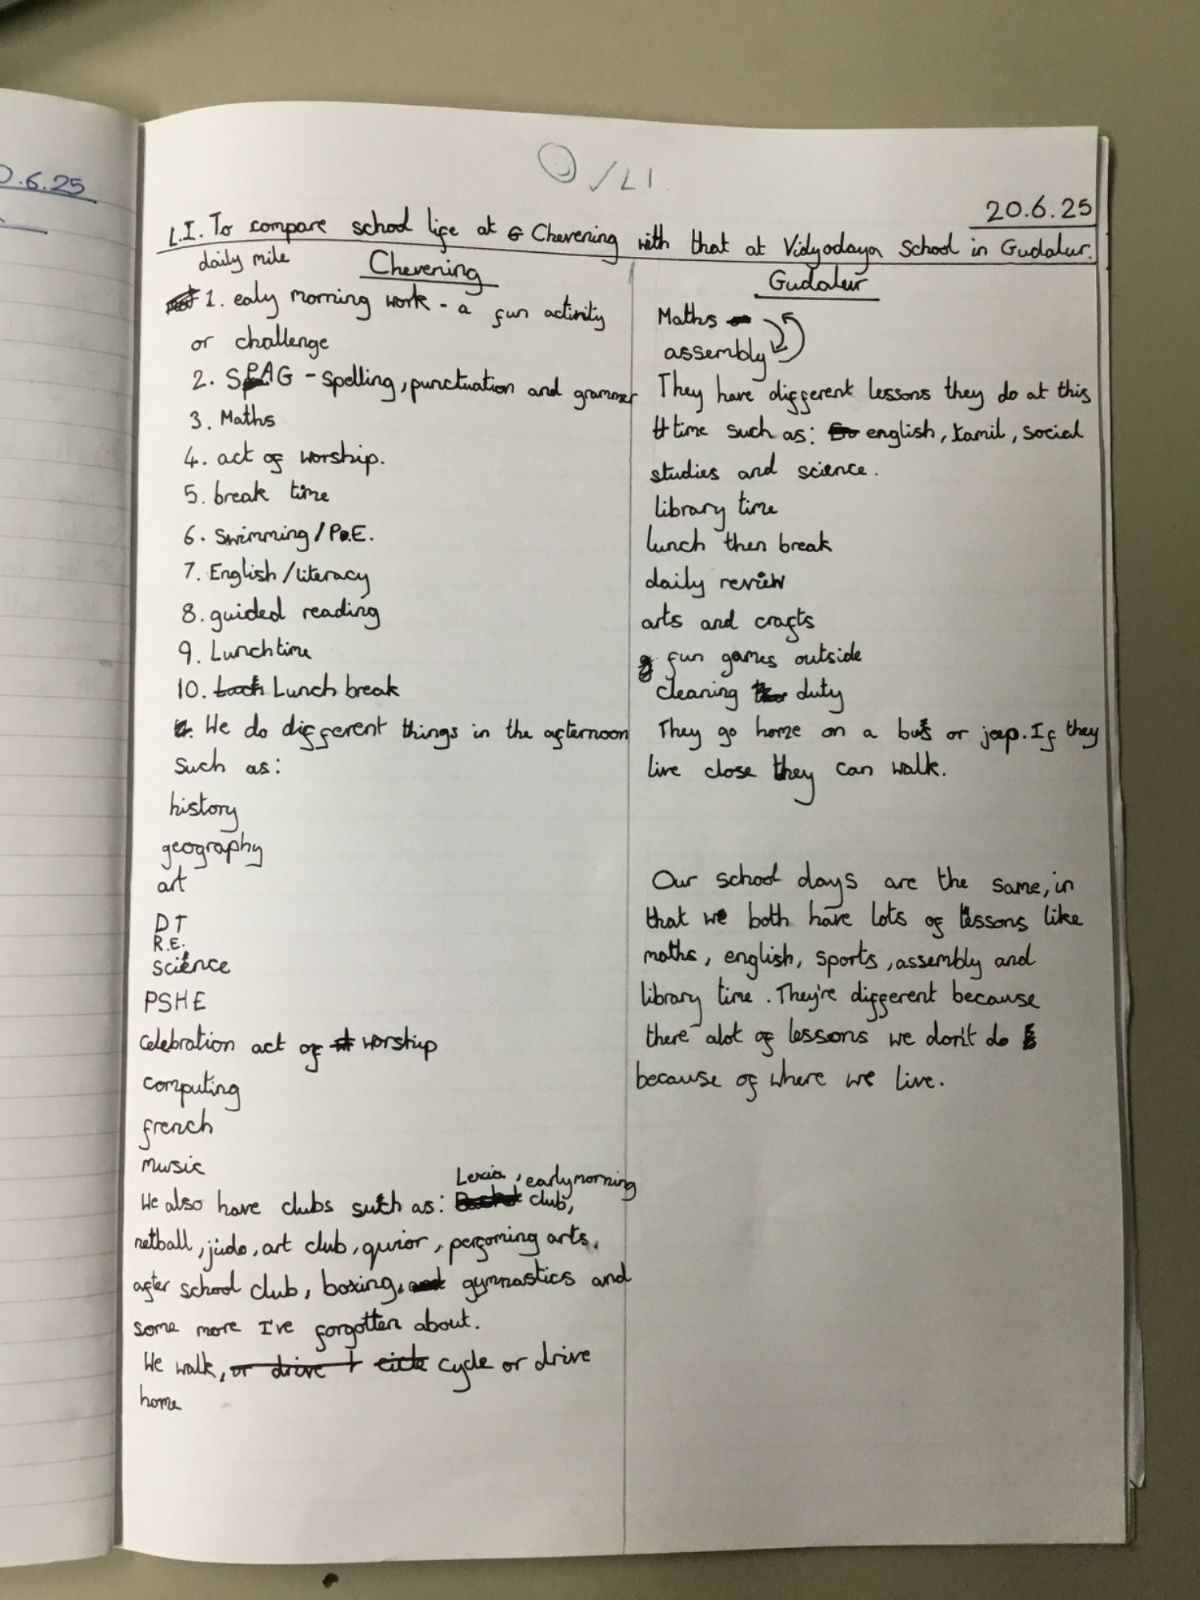 0.6.25
/LI
20.6.25
L.I. To compare school life at Chevening with that at Vidyodaya School in Gudalur.
daily mile
Chevening
1. ealy morning work - a fun activity
or challenge
2. SPAG - spelling, punctuation and grammer
3. Maths
4. act of worship.
5. break time
6. Swimming / P.E.
7. English / literacy
8. guided reading
9. Lunchtime
10. Lunch break
We do different things in the afternoon
Such as:
history
geography
art
DT
R.E.
science
PSHE
celebration act of worship
computing
french
music
Lexia, early morning
We also have clubs such as: club,
netball, judo, art club, quior, perfoming arts,
after school club, boxing, gymnastics and
some more I've forgotten about.
We walk, cycle or drive
home
Gudalur
Maths
assembly
They have different lessons they do at this
time such as: english, tamil, social
studies and science.
library time
lunch then break
daily review
arts and crafts
fun games outside
cleaning duty
They go home on a bus or jeep. If they
live close they can walk.
Our school days are the same, in
that we both have lots of lessons like
maths, english, sports, assembly and
library time. They're different because
there alot of lessons we don't do
because of where we live.